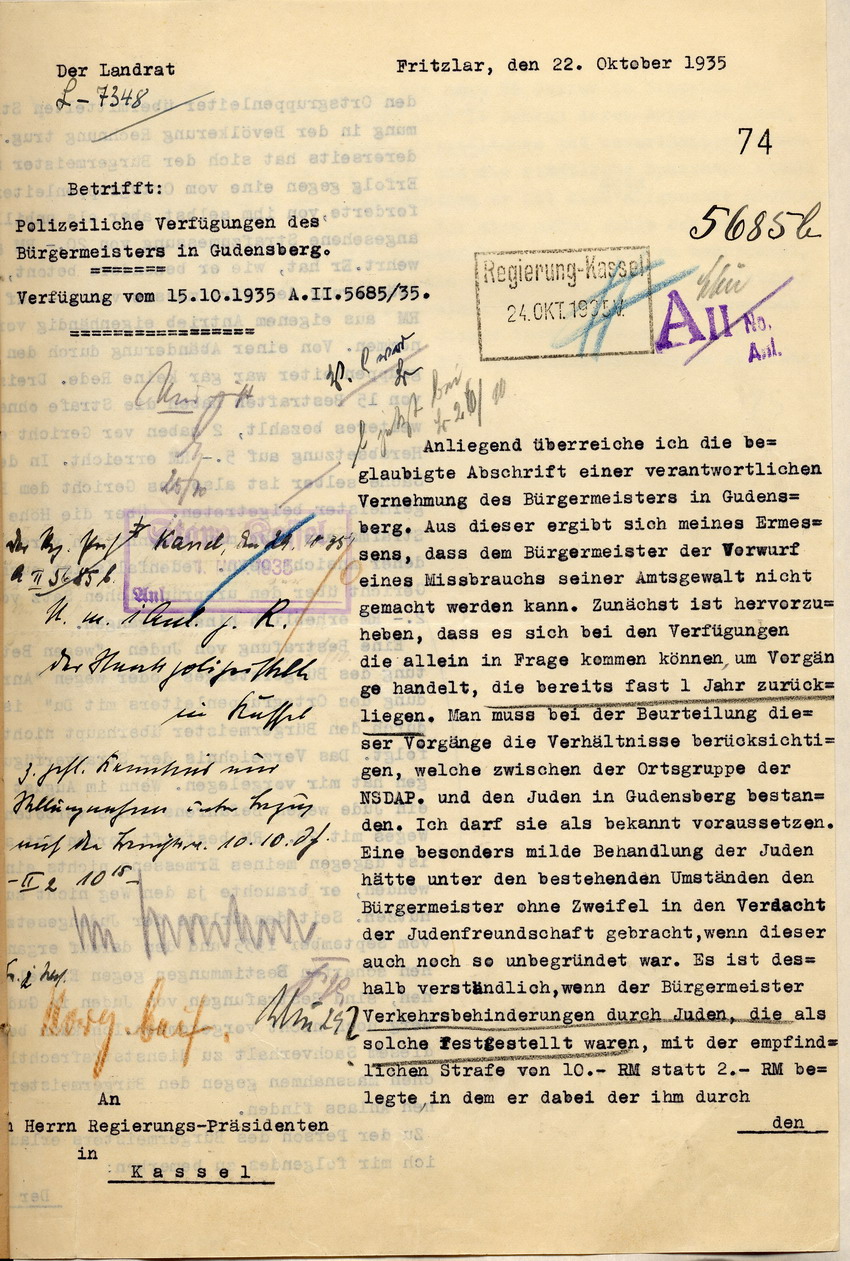 Der Landrat
L - 7348
Fritzlar, den 22. Oktober 1935
74
Betrifft:
Polizeiliche Verfügungen des
Bürgermeisters in Gudensberg.
=======
Verfügung vom 15.10.1935 A.II.5685/35.
=================
5685b
Regierung-Kassel
24.OKT.1935 V.
No.
Anl.
Anliegend überreiche ich die be=
glaubigte Abschrift einer verantwortlichen
Vernehmung des Bürgermeisters in Gudens=
berg. Aus dieser ergibt sich meines Ermes=
sens, dass dem Bürgermeister der Vorwurf
eines Missbrauchs seiner Amtsgewalt nicht
gemacht werden kann. Zunächst ist hervorzu=
heben, dass es sich bei den Verfügungen
die allein in Frage kommen können, um Vorgän
ge handelt, die bereits fast 1 Jahr zurück=
liegen. Man muss bei der Beurteilung die=
ser Vorgänge die Verhältnisse berücksichti=
gen, welche zwischen der Ortsgruppe der
NSDAP. und den Juden in Gudensberg bestan=
den. Ich darf sie als bekannt voraussetzen.
Eine besonders milde Behandlung der Juden
hätte unter den bestehenden Umständen den
Bürgermeister ohne Zweifel in den Verdacht
der Judenfreundschaft gebracht,wenn dieser
auch noch so unbegründet war. Es ist des=
halb verständlich,wenn der Bürgermeister
Verkehrsbehinderungen durch Juden, die als
solche festgestellt waren, mit der empfind=
lichen Strafe von 10.- RM statt 2.- RM be=
legte,in dem er dabei der ihm durch
den
Kassel, den
A II 5685 b.
Anl.
U. m. 1 Anl. g. R.
der Staatspolizeistelle
in Kassel
z. gefl. Kenntnis und
Stellungnahme unter Bezug
auf die 10.10. Js.
- II 2 10 15 -
An
Herrn Regierungs-Präsidenten
in
Kassel